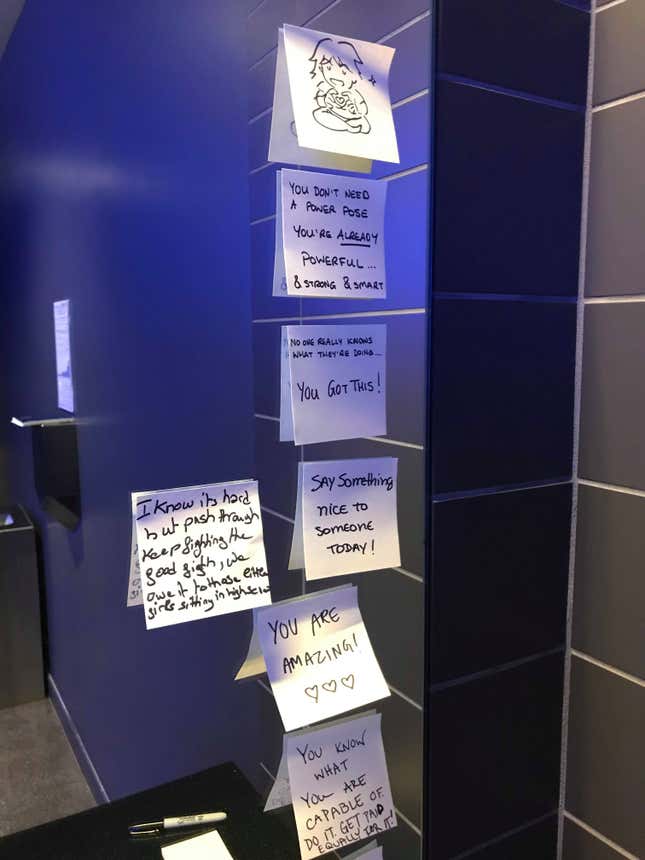 YOU DON'T NEED
A POWER POSE
YOU'RE ALREADY
POWERFUL...
& STRONG & SMART
NO ONE REALLY KNOWS
WHAT THEY'RE DOING...
YOU GOT THIS!
SAY SomEthing
NICE TO
SOMEONE
TODAY!
I Know its hard
but push through
Keep fighting the
good fight, we
owe it to those little
girls sitting in
YOU ARE
AMAZING!
♡♡♡
YOU KNOW
WHAT
YOU ARE
CAPABLE OF.
DO IT. GET PAID
EQUALLY FOR IT!